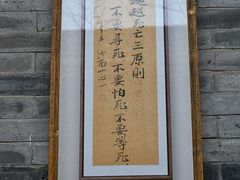 超越死亡三原則
一不要尋死不要怕死不要等死